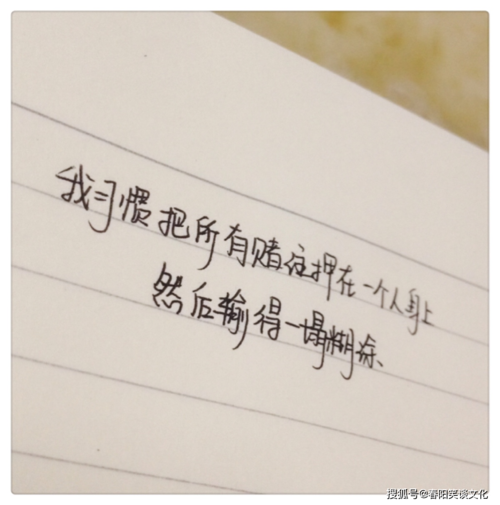 我习惯把所有赌注押在一个人身上
然后输得一塌糊涂、
搜狐号@春阳笑谈文化